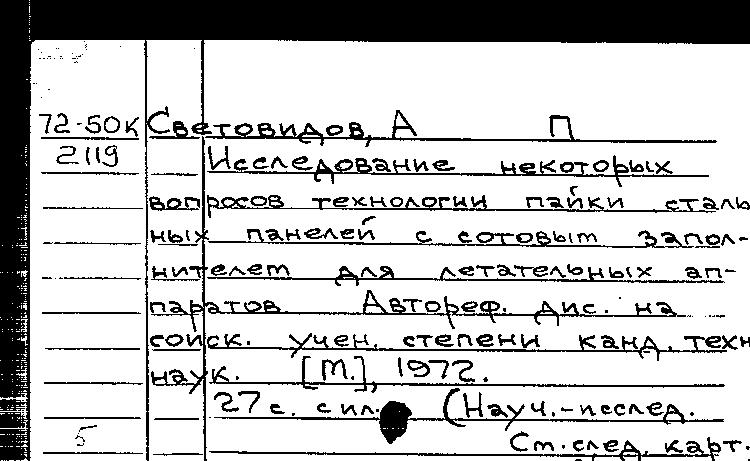 72-50к Световидов, А П
2119 Исследование некоторых
вопросов технологии пайки сталь
ных панелей с сотовым запол-
нителем для летательных ап-
паратов. Автореф. дис. на
соиск. учен. степени канд. техн
наук. [М.], 1972.
27 с. с ил. (Науч.-исслед.
5 См. след. карт.